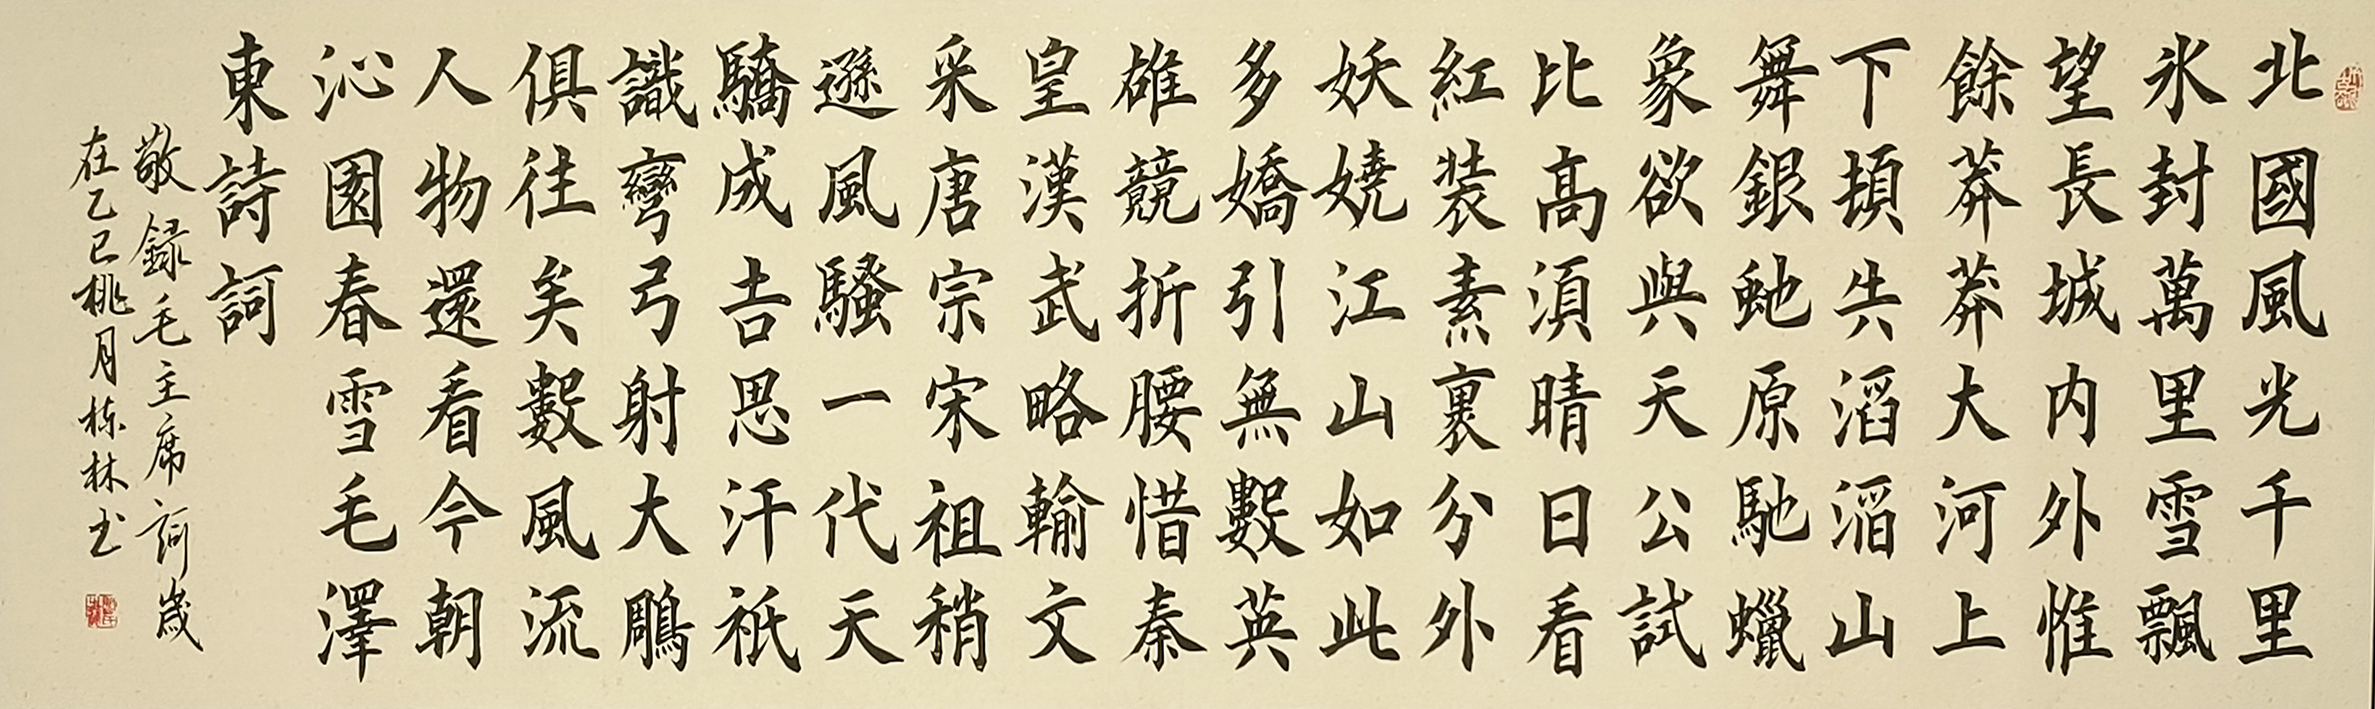 北國風光千里
氷封萬里雪飄
望長城内外惟
餘莽莽大河上
下頓失滔滔山
舞銀虵原馳蠟
象欲與天公試
比高須晴日看
紅装素裹分外
妖嬈江山如此
多嬌引無數英
雄競折腰惜秦
皇漢武略輸文
采唐宗宋祖稍
遜風騷一代天
驕成吉思汗祇
識彎弓射大鵰
俱往矣數風流
人物還看今朝
沁園春雪毛澤
東詩詞
敬録毛主席詞歲
在乙巳桃月栋林书